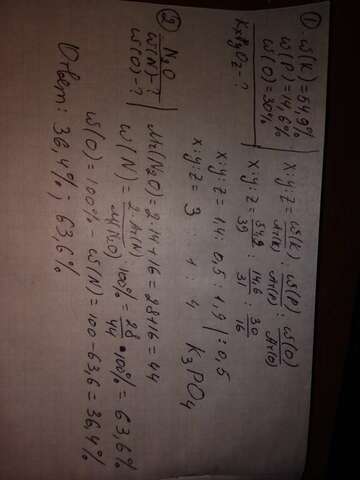 ① ω(K)=54,9%
ω(P)=14,6%
ω(O)=30%
KxPyOz-?
x:y:z = ω(K)/Ar(K) : ω(P)/Ar(P) : ω(O)/Ar(O)
x:y:z = 54,9/39 : 14,6/31 : 30/16
x:y:z = 1,4 : 0,5 : 1,9 | : 0,5
x:y:z = 3 : 1 : 4 K₃PO₄
② N₂O
ω(N)-?
ω(O)-?
Mr(N₂O)=2·14+16=28+16=44
ω(N) = 2·Ar(N)/Mr(N₂O) · 100% = 28/44 · 100% = 63,6%
ω(O)=100% - ω(N)=100-63,6=36,4%
Ответ: 36,4% ; 63,6%